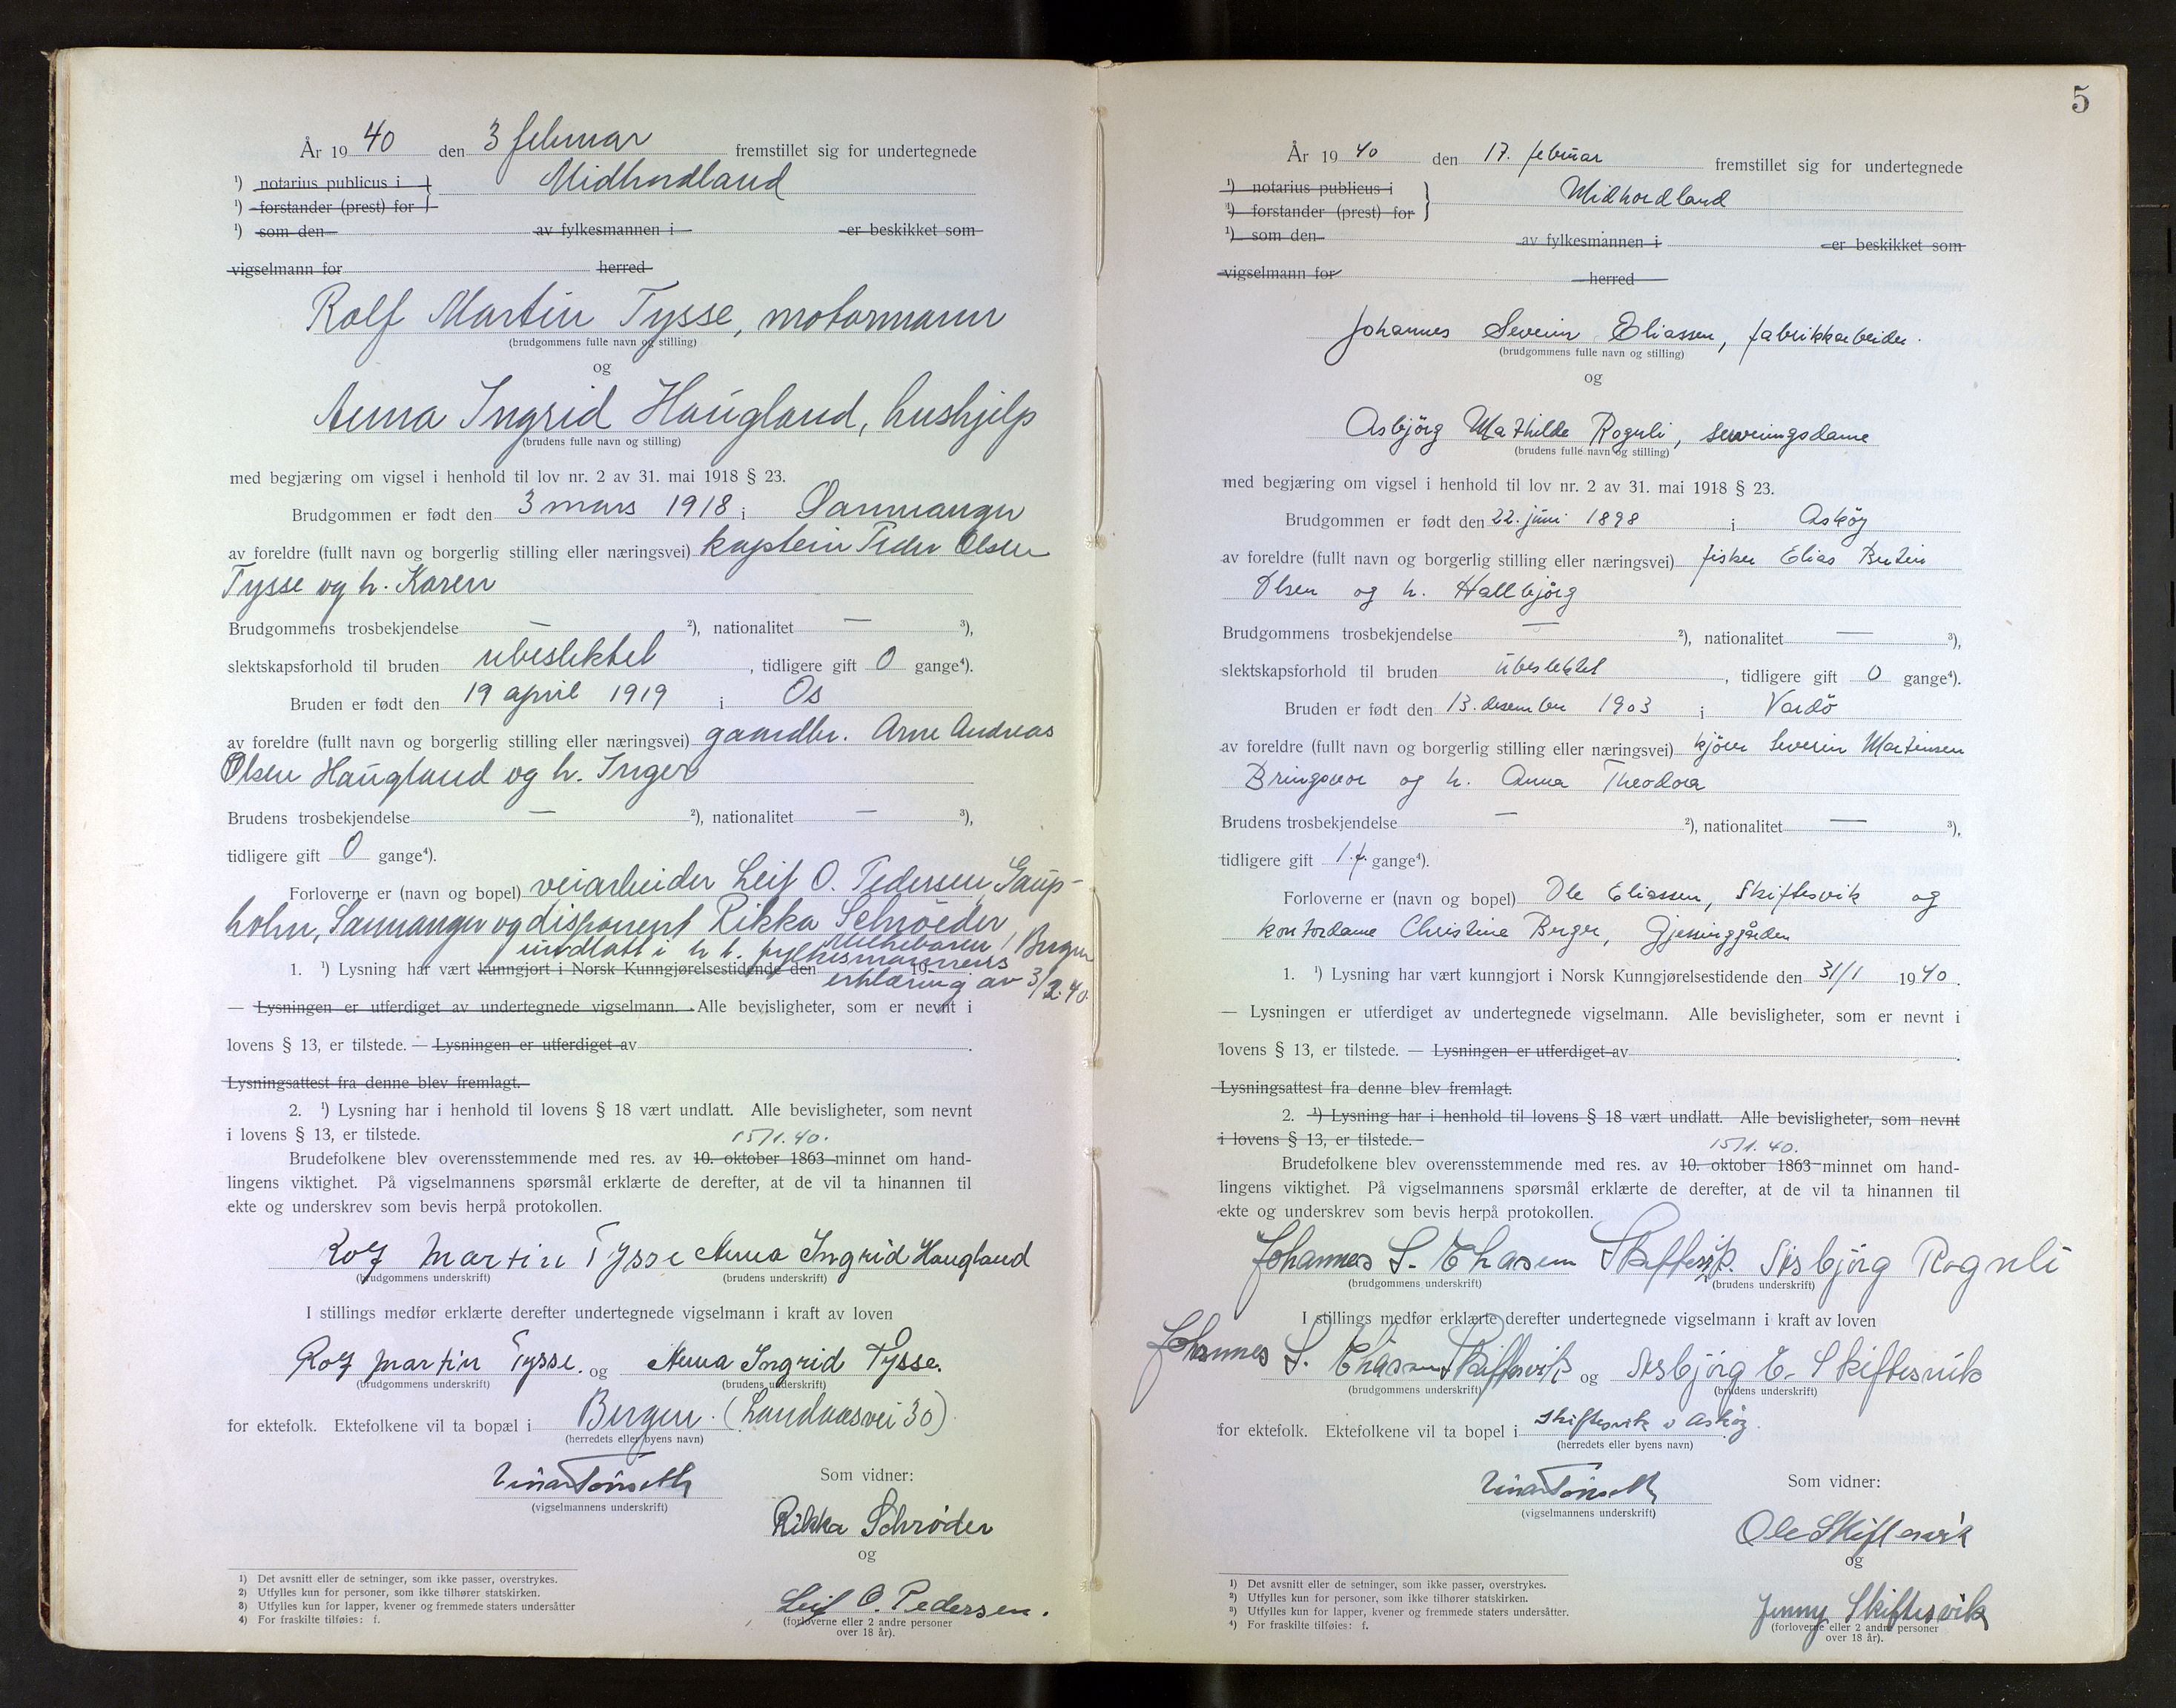 År 1940 den 3 februar fremstillet sig for undertegnede
¹) notarius publicus i } Midhordland
¹) forstander (prest) for }
¹) som den av fylkesmannen i er beskikket som
vigselmann for herred
Rolf Martin Tysse, motormann
(brudgommens fulle navn og stilling)
og
Anna Ingrid Haugland, hushjelp
(brudens fulle navn og stilling)
med begjæring om vigsel i henhold til lov nr. 2 av 31. mai 1918 § 23.
Brudgommen er født den 3 mars 1918 i Samnanger
av foreldre (fullt navn og borgerlig stilling eller næringsvei) kaptein Peder Olsen
Tysse og h. Karen
Brudgommens trosbekjendelse — ²), nationalitet — ³),
slektskapsforhold til bruden ubeslektet, tidligere gift 0 gange⁴).
Bruden er født den 19 april 1919 i Os
av foreldre (fullt navn og borgerlig stilling eller næringsvei) gaardbr. Arne Andreas
Olsen Haugland og h. Inger
Brudens trosbekjendelse — ²), nationalitet — ³),
tidligere gift 0 gange⁴).
Forloverne er (navn og bopel) veiarbeider Leif O. Pedersen, Gaup-
holm, Samnanger og disponent Rikka Schrøder,
Bergen
undlatt i h. t. fylkesmannens
1. ¹) Lysning har vært kunngjort i Norsk Kunngjørelsestidende den 19
erklæring av 3/2.40.
— Lysningen er utferdiget av undertegnede vigselmann. Alle bevisligheter, som er nevnt i
lovens § 13, er tilstede. — Lysningen er utferdiget av .
Lysningsattest fra denne blev fremlagt.
2. ¹) Lysning har i henhold til lovens § 18 vært undlatt. Alle bevisligheter, som nevnt
i lovens § 13, er tilstede.
15/1.40.
Brudefolkene blev overensstemmende med res. av 10. oktober 1863 minnet om hand-
lingens viktighet. På vigselmannens spørsmål erklærte de derefter, at de vil ta hinannen til
ekte og underskrev som bevis herpå protokollen.
Rolf Martin Tysse Anna Ingrid Haugland
(brudgommens underskrift) (brudens underskrift)
I stillings medfør erklærte derefter undertegnede vigselmann i kraft av loven
Rolf Martin Tysse. og Anna Ingrid Tysse.
(brudgommens underskrift) (brudens underskrift)
for ektefolk. Ektefolkene vil ta bopæl i Bergen. (Landaasvei 30)
(herredets eller byens navn)
Einar Tønseth
(vigselmannens underskrift)
Som vidner:
Rikka Schrøder
og
Leif O. Pedersen.
(forloverne eller 2 andre personer
over 18 år).
1) Det avsnitt eller de setninger, som ikke passer, overstrykes.
2) Utfylles kun for personer, som ikke tilhører statskirken.
3) Utfylles kun for lapper, kvener og fremmede staters undersåtter
4) For fraskilte tilføies: f.
5
År 1940 den 17. februar fremstillet sig for undertegnede
¹) notarius publicus i } Midhordland
¹) forstander (prest) for }
¹) som den av fylkesmannen i er beskikket som
vigselmann for herred
Johannes Severin Eliassen, fabrikkarbeider.
(brudgommens fulle navn og stilling)
og
Asbjörg Mathilde Rognli, serveringsdame
(brudens fulle navn og stilling)
med begjæring om vigsel i henhold til lov nr. 2 av 31. mai 1918 § 23.
Brudgommen er født den 22. juni 1898 i Asköy
av foreldre (fullt navn og borgerlig stilling eller næringsvei) fisker Elias
Olsen og h. Hallbjörg
Brudgommens trosbekjendelse — ²), nationalitet — ³),
slektskapsforhold til bruden ubeslektet, tidligere gift 0 gange⁴).
Bruden er født den 13. desember 1903 i Vardö
av foreldre (fullt navn og borgerlig stilling eller næringsvei) kjörer Severin Martinsen
Bringsvor og h. Anna Theodora
Brudens trosbekjendelse — ²), nationalitet — ³),
tidligere gift 1.f. gange⁴).
Forloverne er (navn og bopel) Ole Eliassen, Skiftesvik og
kontordame Christine Berge, Gjessinggården
1. ¹) Lysning har vært kunngjort i Norsk Kunngjørelsestidende den 31/1 1940.
— Lysningen er utferdiget av undertegnede vigselmann. Alle bevisligheter, som er nevnt i
lovens § 13, er tilstede. — Lysningen er utferdiget av .
Lysningsattest fra denne blev fremlagt.
2. ¹) Lysning har i henhold til lovens § 18 vært undlatt. Alle bevisligheter, som nevnt
i lovens § 13, er tilstede.
15/1.40.
Brudefolkene blev overensstemmende med res. av 10. oktober 1863 minnet om hand-
lingens viktighet. På vigselmannens spørsmål erklærte de derefter, at de vil ta hinannen til
ekte og underskrev som bevis herpå protokollen.
Johannes S. Eliasen Skiftesvik. Asbjörg Rognli
(brudgommens underskrift) (brudens underskrift)
I stillings medfør erklærte derefter undertegnede vigselmann i kraft av loven
Johannes S. Eliasen Skiftesvik og Asbjörg E. Skiftesvik
(brudgommens underskrift) (brudens underskrift)
for ektefolk. Ektefolkene vil ta bopel i Skiftesvik v Asköy.
(herredets eller byens navn)
Einar Tønseth
(vigselmannens underskrift)
Som vidner:
Ole Skiftesvik
og
Jenny Skiftesvik
(forloverne eller 2 andre personer
over 18 år).
1) Det avsnitt eller de setninger, som ikke passer, overstrykes.
2) Utfylles kun for personer, som ikke tilhører statskirken.
3) Utfylles kun for lapper, kvener og fremmede staters undersåtter.
4) For fraskilte tilføies: f.